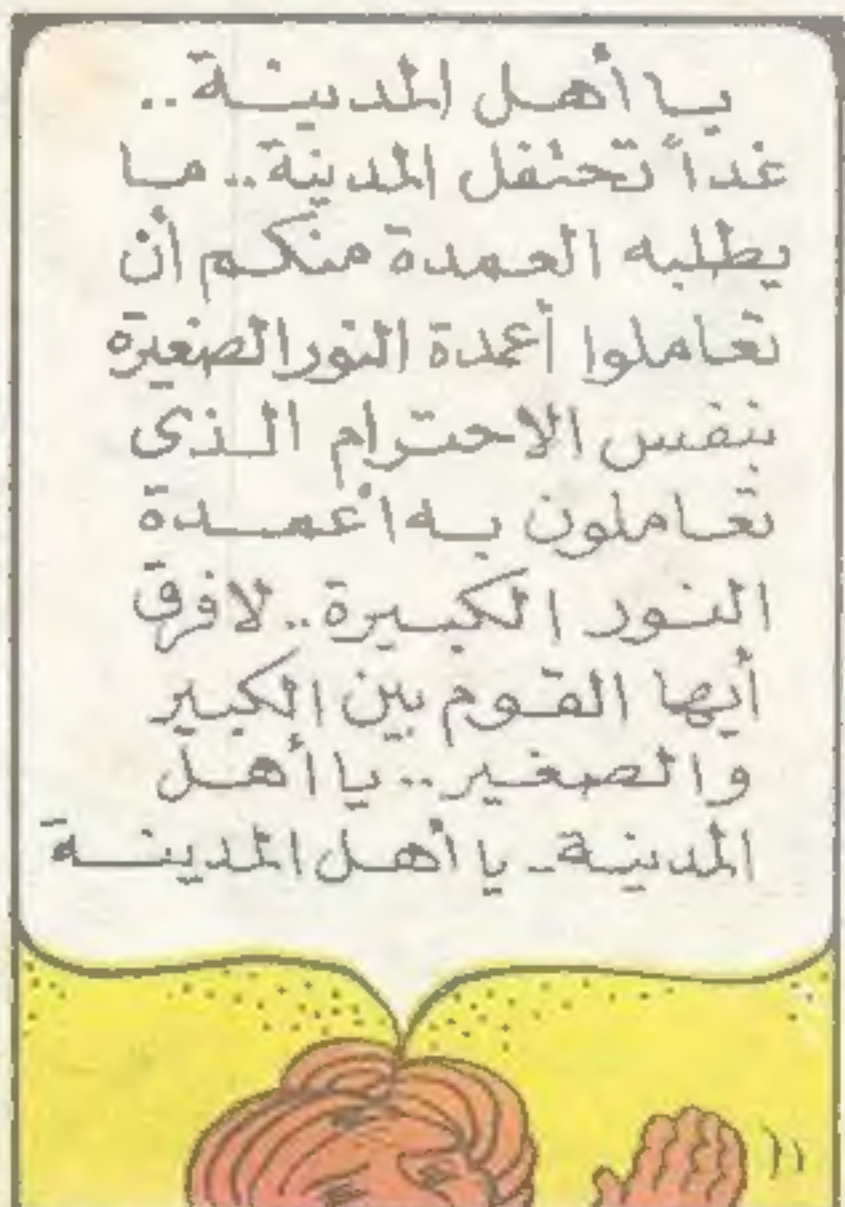 يا أهل المدينة ..
غداً تحتفل المدينة .. ما
يطلبه العمدة منكم أن
تعاملوا أعمدة النور الصغيرة
بنفس الاحترام الذى
تعاملون به أعمدة
النور الكبيرة .. لا فرق
أيها القوم بين الكبير
والصغير .. يا أهل
المدينة - يا أهل المدينة